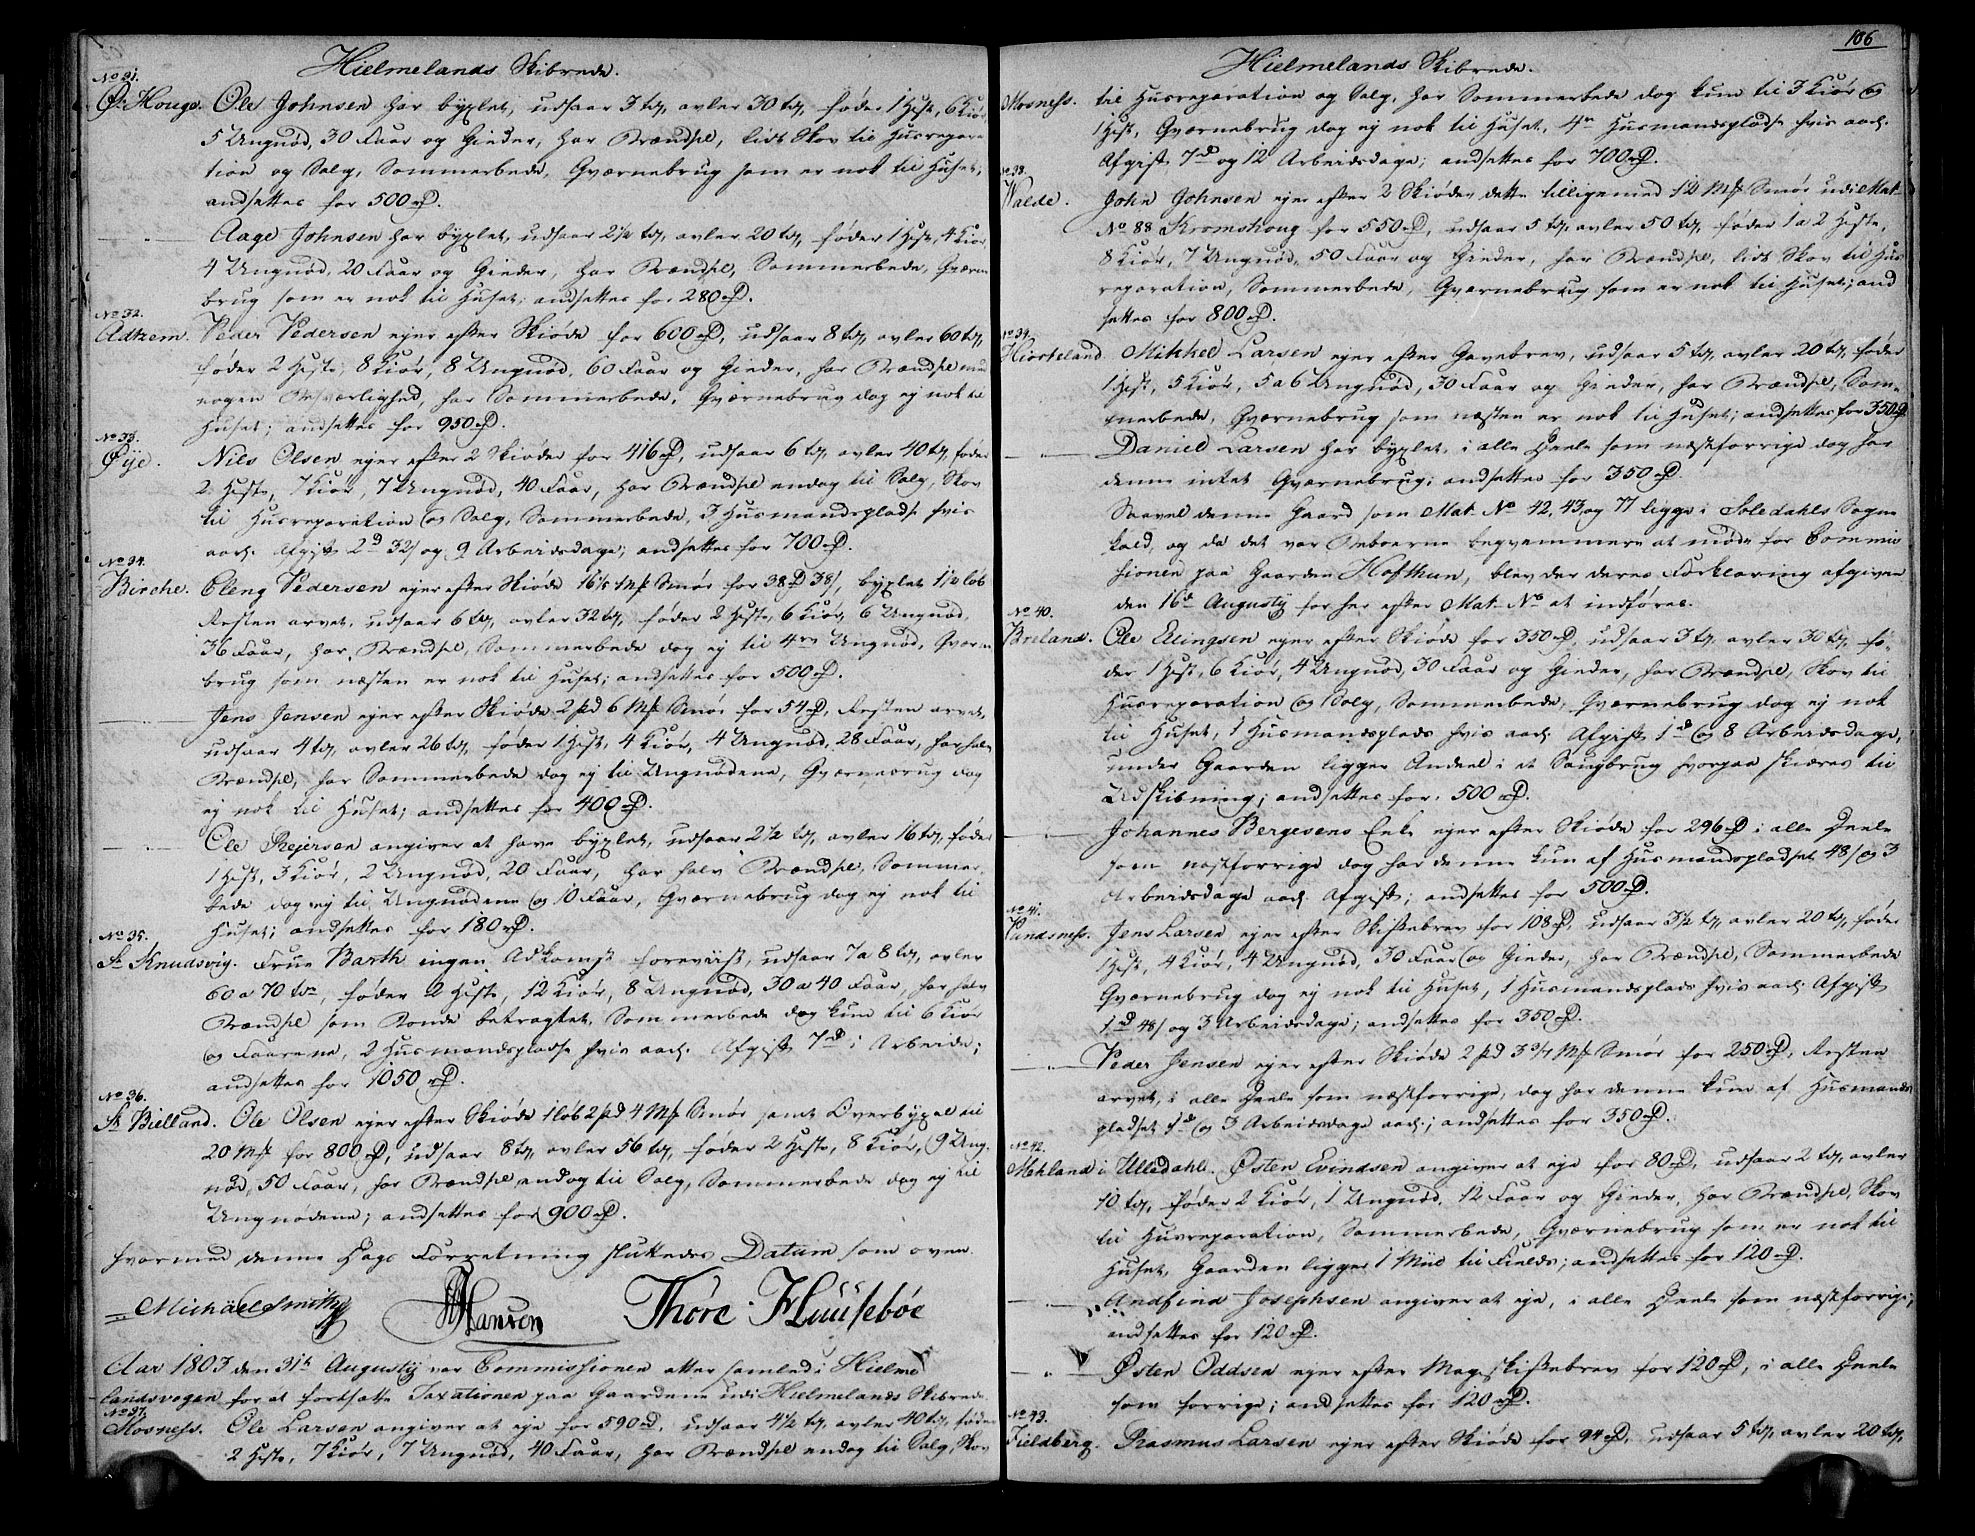 Hielmelands Skibrede.
No 31.
Ø. Houge. Ole Johnsen har byxlet, udsaar 3 tr, avler 30 tr, føder 1 Hest, 6 Kiør,
5 Ungnød, 30 Faar og Gieder, har Brændsel, lidt Skov til Husrepara
tion og Salg, Sommerbede, Qværnebrug som er nok til Huset,
andsettes for 500 rd.
Aage Johnsen har byxlet, udsaar 2 1/2 tr, avler 20 tr, føder 1 Hest, 4 Kiør,
4 Ungnød, 20 Faar og Gieder, har Brændsel, Sommerbede, Qværne
brug som er nok til Huset; andsettes for 280 rd.
No 32.
Adtzem. Peder Pedersen ejer efter Skiøde for 600 rd, udsaar 8 tr, avler 60 tr,
føder 2 Heste, 8 Kiør, 8 Ungnød, 60 Faar og Gieder, har Brændsel med
nogen Besværlighed, har Sommerbede, Qværnebrug dog ej nok til
Huset; andsettes for 950 rd.
No 33.
Øye. Nils Olsen ejer efter 2 Skiøder for 416 rd, udsaar 6 tr, avler 40 tr, føder
2 Heste, 7 Kiør, 7 Ungnød, 40 Faar, har Brændsel endog til Salg, Skov
til Husreparation og Salg, Sommerbede, 3 Husmandspladse hvis
aarl. Afgift 2 d 32 s og 9 Arbeidsdage; andsettes for 700 rd.
No 34.
Birche. Eleng Pedersen ejer efter Skiøde 16 1/2 Mf Smør for 38 rd 38 s, byxlet 1 1/2 løb
Resten arvet, udsaar 6 tr, avler 32 tr, føder 2 Heste, 6 Kiør, 6 Ungnød,
36 Faar, har Brændsel, Sommerbede dog ej til 4re Ungnød, Qværne
brug som næsten er nok til Huset; andsettes for 500 rd.
Jens Jensen ejer efter Skiøde 2 pd 6 Mf Smør for 54 rd, Resten arvet,
udsaar 4 tr, avler 26 tr, føder 1 Hest, 4 Kiør, 4 Ungnød, 28 Faar, har halv
Brændsel, har Sommerbede dog ej til Ungnødene, Qværnebrug dog
ej nok til Huset; andsettes for 400 rd.
Ole Rejersen angiver at have byxlet, udsaar 2 1/2 tr, avler 16 tr, føder
1 Hest, 3 Kiør, 2 Ungnød, 20 Faar, har halv Brændsel, Sommer
bede dog ej til Ungnødene og 10 Faar, Qværnebrug dog ej nok til
Huset; andsettes for 180 rd.
No 35.
St. Knudsvig. Frue Barth ingen Adkomst foreviist, udsaar 7 a 8 tr, avler
60 a 70 tr, føder 2 Heste, 12 Kiør, 8 Ungnød, 30 a 40 Faar, har halv
Brændsel som Bonde betragtet, Sommerbede dog kun til 6 Kiør
og Faarene, 2 Husmandspladse hvis aarl. Afgift 7 d i Arbeide;
andsettes for 1050 rd.
No 36.
St. Bielland. Ole Olsen ejer efter Skiøde 1 løb 2 pd 4 Mf Smør samt Overbyxel til
20 Mf for 800 rd, udsaar 8 tr, avler 56 tr, føder 2 Heste, 8 Kiør, 9 Ung
nød, 50 Faar, har Brændsel endog til Salg, Sommerbede dog ej til
Ungnødene; andsettes for 900 rd.
hvormed denne Dags Forretning sluttedes Datum som oven.
Michäel Smith Hansen Thore Huusebøe
Aar 1803 den 31te Augusty var Commissionen atter samled i Hielme
landsvogen for at fortsætte Taxationen paa Gaardene udi Hielmelands Skibrede.
No 37.
Mosness. Ole Larsen angiver at eje for 590 rd, udsaar 4 1/2 tr, avler 40 tr, føder
2 Heste, 7 Kiør, 7 Ungnød, 40 Faar, har Brændsel endog til Salg, Skov
106
Hielmelands Skibrede.
Mosness. til Husreparation og Salg, har Sommerbede dog kun til 3 Kiør og
1 Hest, Qværnebrug dog ej nok til Huset, 4re Husmandspladse hvis aarl.
Afgift 7 d og 12 Arbeidsdage; andsettes for 700 rd.
No 38.
Walde. John Johnsen ejer efter 2 Skiøder dette tilligemed 12 Mf Smør udi Mat.
No 88 Kromshoug for 550 rd, udsaar 5 tr, avler 50 tr, føder 1 a 2 Heste,
8 Kiør, 7 Ungnød, 50 Faar og Gieder, har Brændsel, lidt Skov til Hus
reparation, Sommerbede, Qværnebrug som er nok til Huset; and
settes for 800 rd.
No 39.
Hiorteland. Mikkel Larsen ejer efter Gavebrev, udsaar 5 tr, avler 20 tr, føder
1 Hest, 5 Kiør, 5 a 6 Ungnød, 30 Faar og Gieder, har Brændsel, Som
merbede, Qværnebrug som næsten er nok til Huset; andsettes for 350 rd.
Daniel Larsen har byxlet, i alle Deele som næstforrige dog har
denne intet Qværnebrug; andsettes for 350 rd.
Saavel denne Gaard som Mat. No 42, 43, og 77 ligge i Soledahls Sogne
kald, og da det var Beboerne beqvemmere at møde for Commis
sionen paa Gaarden Hofthun, blev der deres Forklaring afgiven
den 16de Augusty for her efter Mat. No at indføres.
No 40.
Breland. Ole Elingsen ejer efter Skiøde for 350 rd, udsaar 3 tr, avler 30 tr, fø
der 1 Hest, 6 Kiør, 4 Ungnød, 30 Faar og Gieder, har Brændsel, Skov til
Husreparation og Salg, Sommerbede, Qværnebrug dog ej nok
til Huset, 1 Husmandsplads hvis aarl. Afgift 1 d og 8 Arbeidsdage,
under Gaarden ligger Andeel i et Saugbrug hvorpaa skiæres til
Udskibning; andsettes for 500 rd.
Johannes Bergesens Enke ejer efter Skiøde for 296 rd i alle Deele
som næstforrige dog har denne kun af Husmandspladset 48 s og 3
Arbeidsdage aarl. Afgift; andsettes for 500 rd.
No 41.
Vandsness. Jens Larsen ejer efter Skiftebrev for 108 rd, udsaar 3 1/2 tr, avler 20 tr, føder
1 Hest, 4 Kiør, 4 Ungnød, 30 Faar og Gieder, har Brændsel, Sommerbede
Qværnebrug dog ej nok til Huset, 1 Husmandsplads hvis aarl. Afgift
1 d 48 s og 3 Arbeidsdage; andsettes for 350 rd.
Peder Jensen ejer efter Skiøde 2 pd Mf Smør for 250 rd, Resten
arvet, i alle Deele som næstforrige, dog har denne kun af Husmands
pladset 1 d og 3 Arbeidsdage aarl.; andsettes for 350 rd.
No 42.
Mehland i Ulledahl. Østen Evindsen angiver at eje for 80 rd, udsaar 2 tr, avler
10 tr, føder 2 Kiør, 1 Ungnød, 12 Faar og Gieder, har Brændsel, Skov
til Husreparation, Sommerbede, Qværnebrug som er nok til
Huset, Gaarden ligger 1 Miil til Fields; andsettes for 120 rd.
Andfind Josephsen angiver at eje, i alle Deele som næstforrige;
andsettes for 120 rd.
Østen Oddsen ejer efter Mageskiftebrev for 120 rd, i alle Deele
som forrige; andsettes for 120 rd.
No 43.
Fieldberg. Rasmus Larsen ejer efter Skiøde for 94 rd, udsaar 5 tr, avler 20 tr,